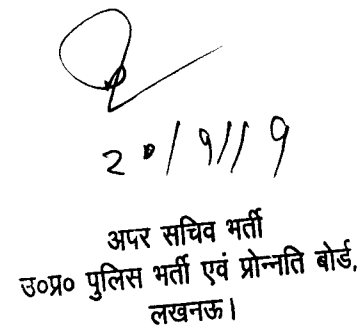 20/9/19
अपर सचिव भर्ती
उ०प्र० पुलिस भर्ती एवं प्रोन्नति बोर्ड,
लखनऊ।